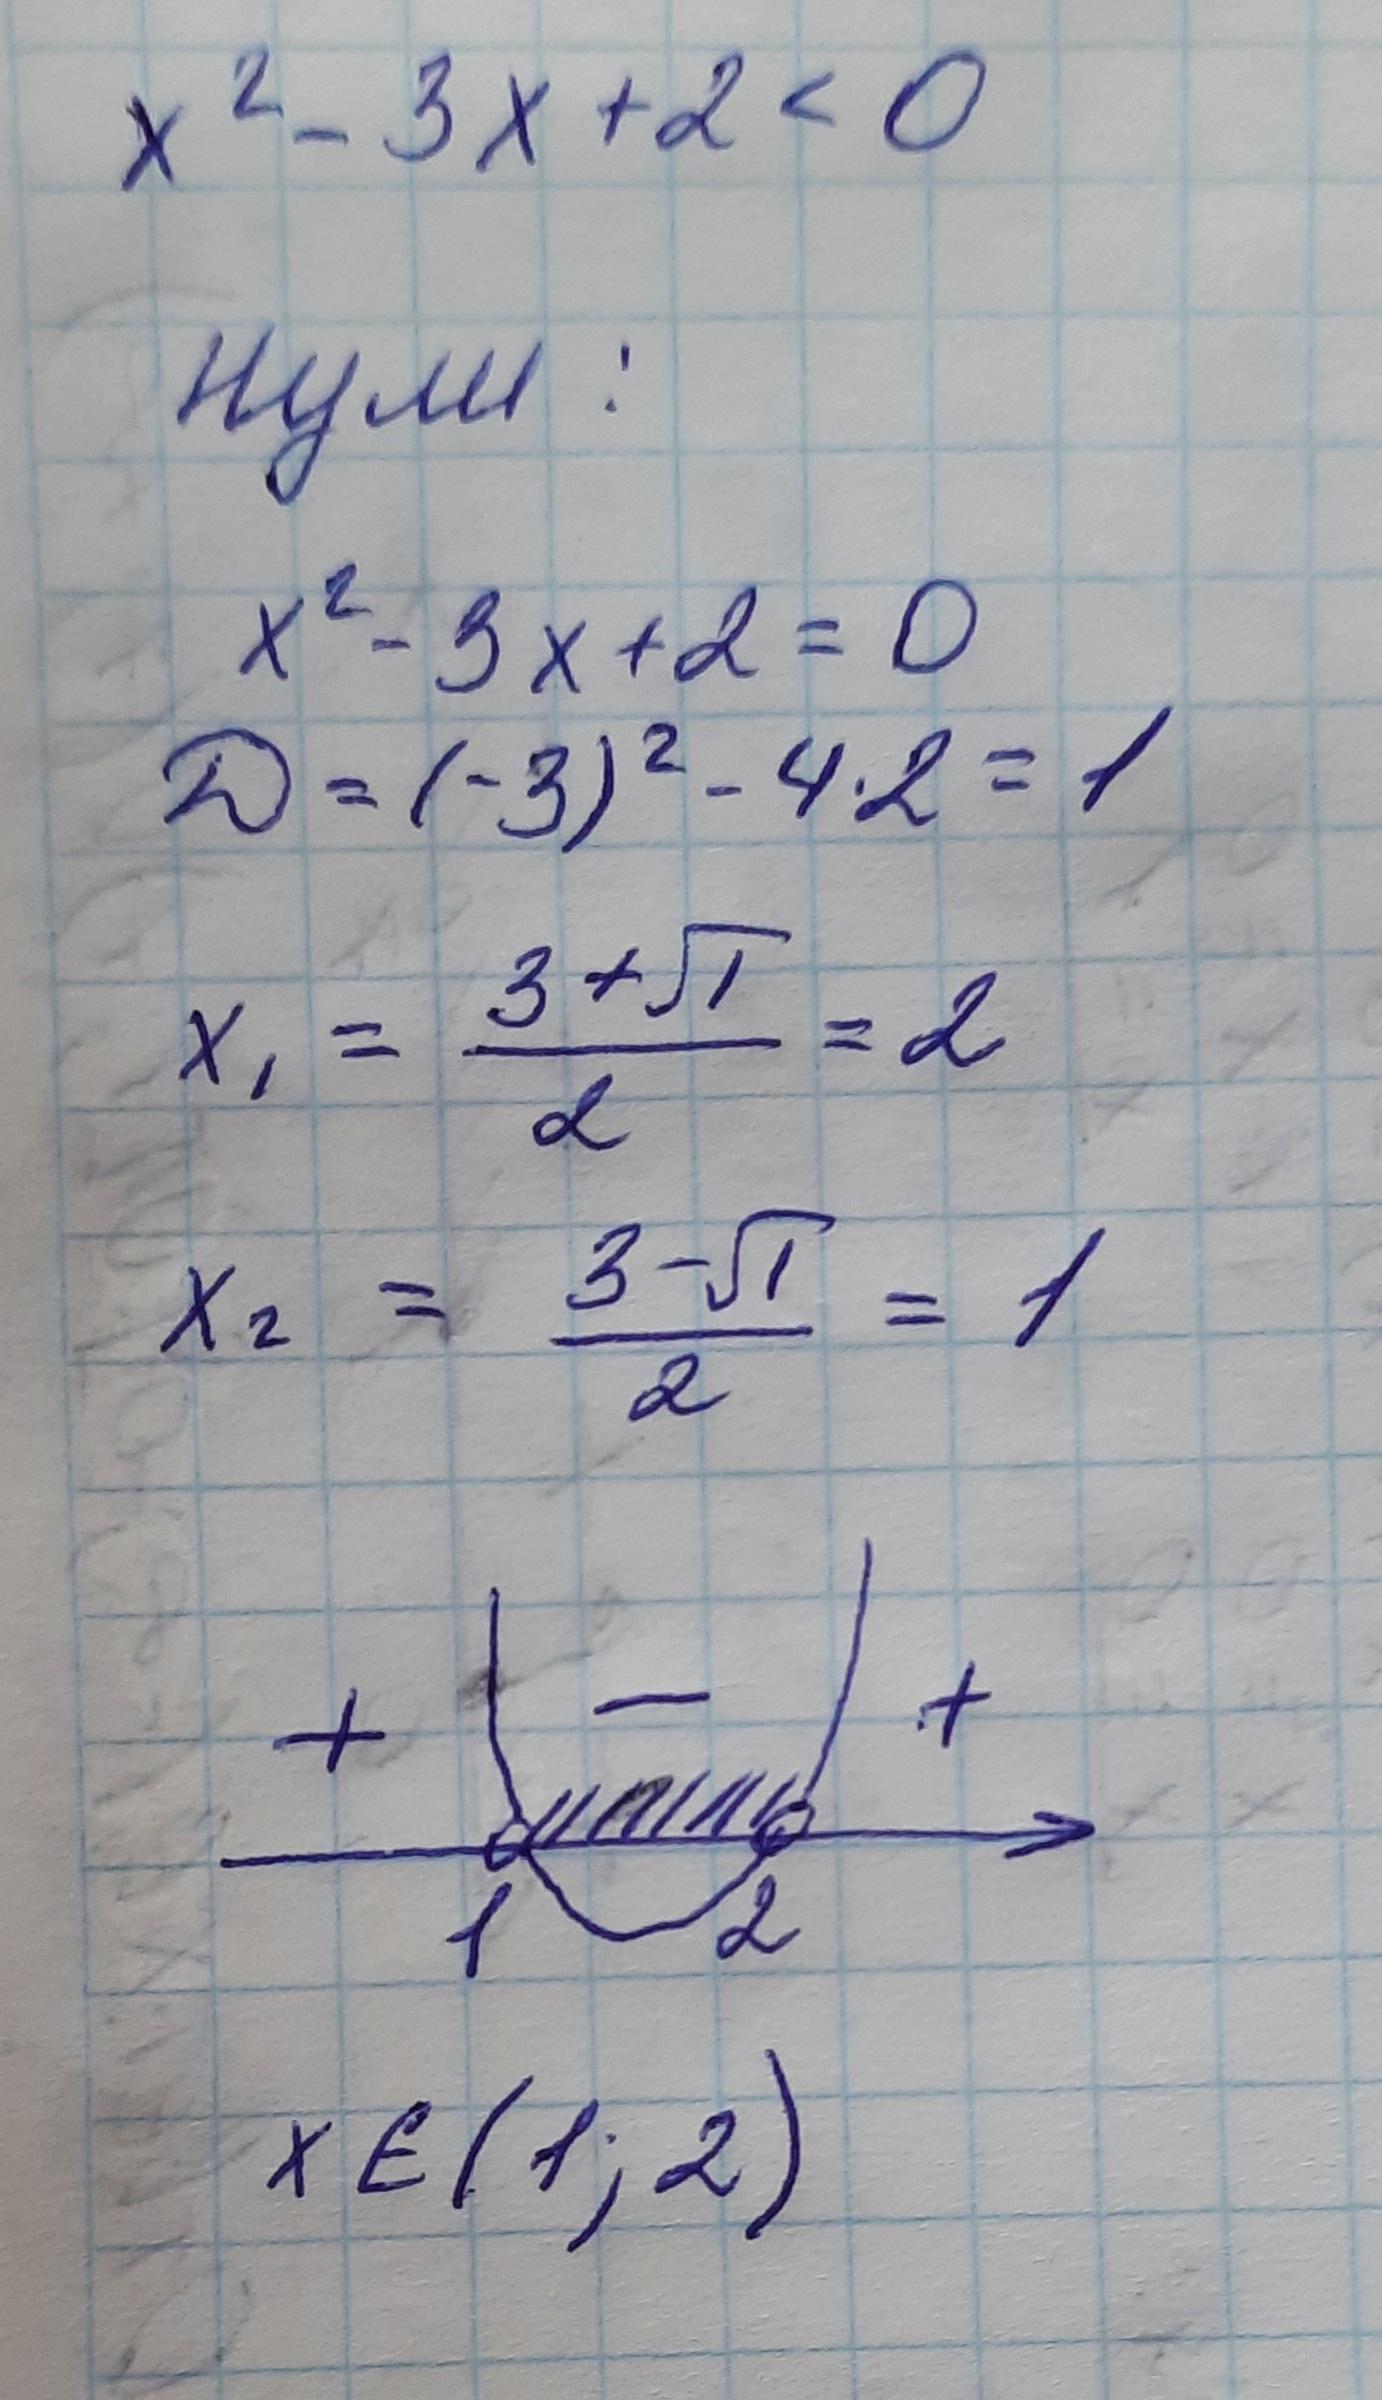 x² - 3x + 2 < 0
Нулі :
x² - 3x + 2 = 0
D = (-3)² - 4·2 = 1
x₁ = (3 + √1)/2 = 2
x₂ = (3 - √1)/2 = 1
+ − +
1 2
x ∈ (1; 2)